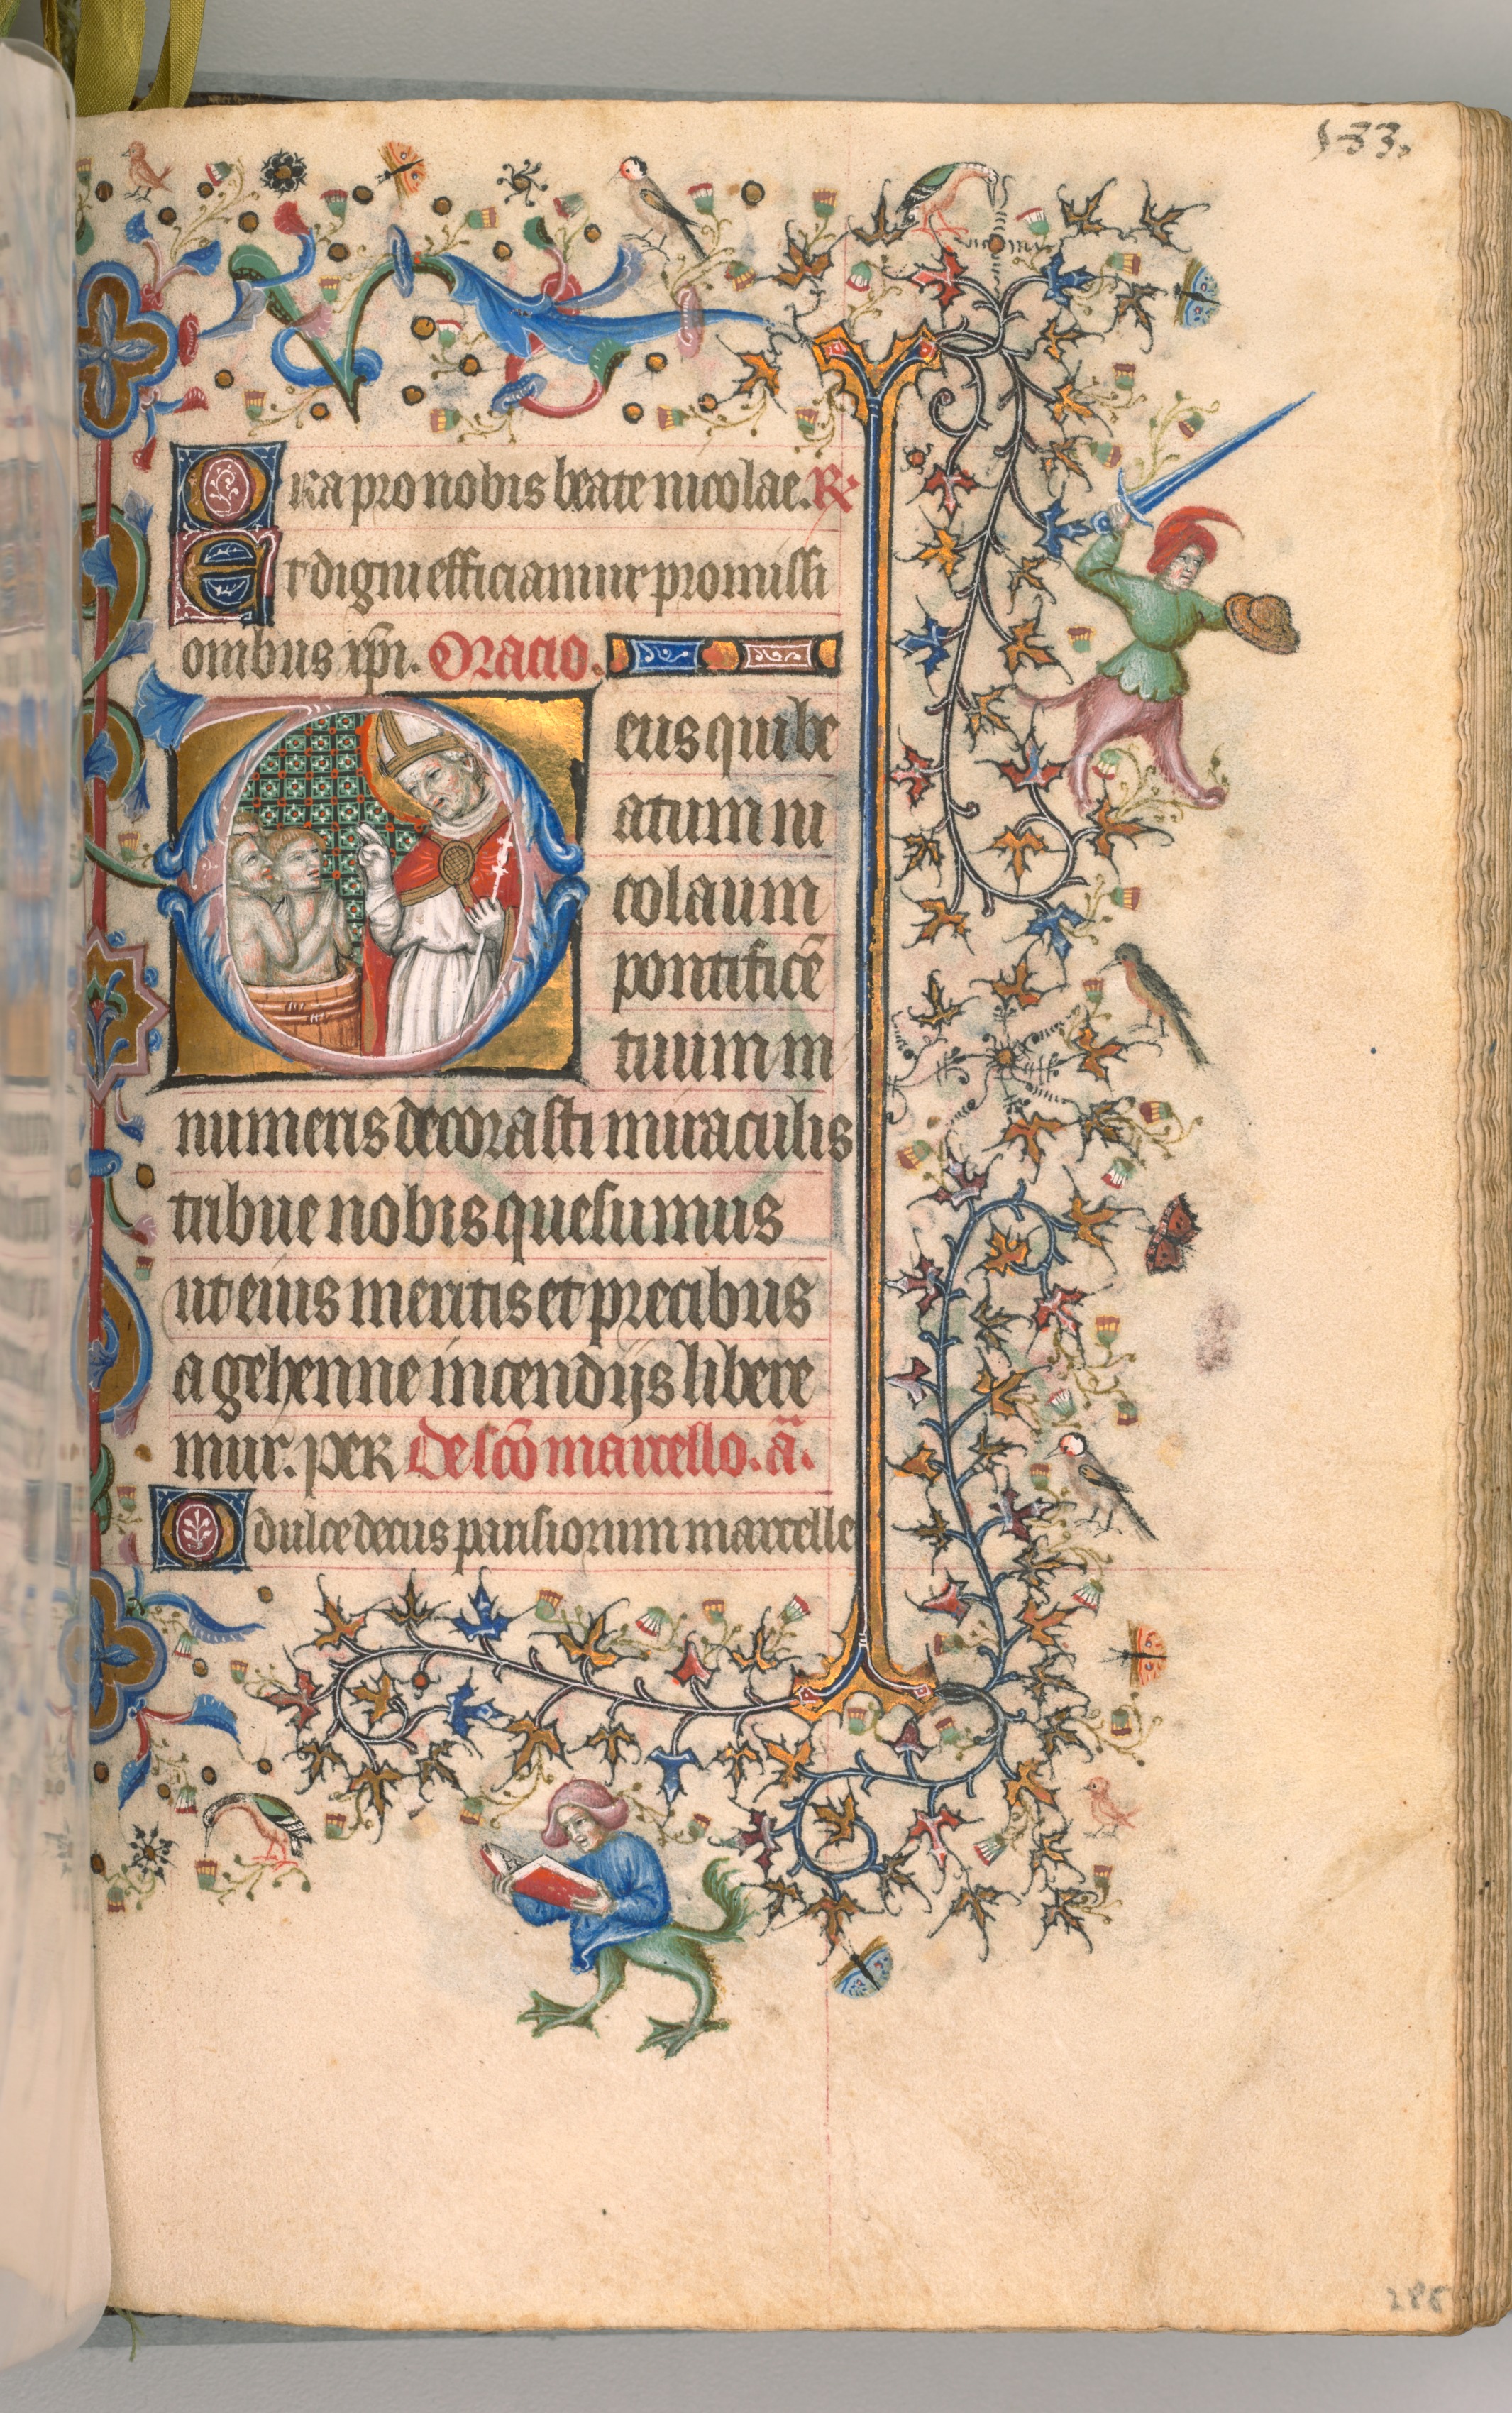 533.
Ora pro nobis beate nicolae. R
Et digni efficiamur promissi
onibus xpi. Oracio.
Deus qui be
atum ni
colaum
pontificē
tuum in
numeris decorasti miraculis
tribue nobis quesumus
ut eius meritis et precibus
a gehenne incendijs libere
mur. per De scō marcello. ā.
O dulce decus parisiorum marcelle